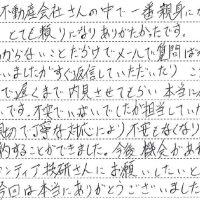 不動産会社さんの中で一番親身に
とても頼りになりありがたかったです。
からないことだらけでメールで質問ば
いましたがすぐ返信していただいたり こ
で遅くまで内見させてもらい 本当に
です。不安でいないでしたが担当してい
切で丁寧な対応により不安もなくなり
約することができました。今後 機会があ
ンティア技研さんにお願いしたいと
今回は本当にありがとうございました